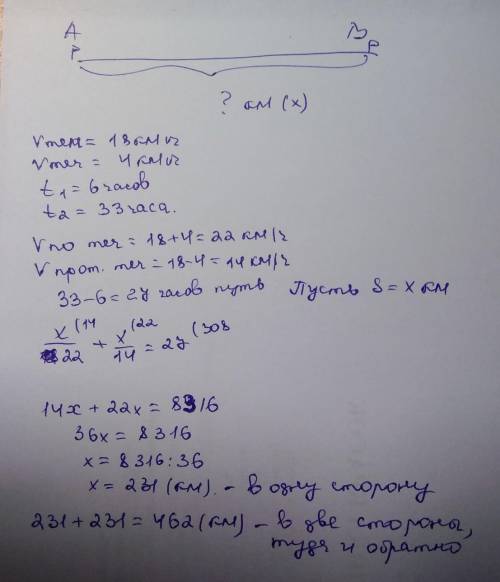 А В
Р Р
? км (х)
Vтеп = 18 км/ч
Vтеч = 4 км/ч
t1 = 6 часов
t2 = 33 часа.
Vпо теч = 18+4 = 22 км/ч
Vпрот. теч = 18-4 = 14 км/ч
33-6 = 27 часов путь Пусть S = х км
х(14/22 + х(22/14 = 27(308
14х + 22х = 8316
36х = 8316
х = 8316:36
х = 231 (км). - в одну сторону
231 + 231 = 462 (км) - в две стороны,
туда и обратно